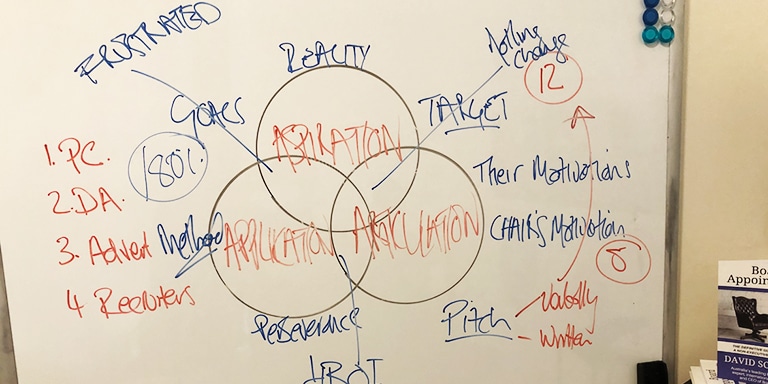 FRUSTRATED
REALITY
Nothing Change
12
GOALS
TARGET
ASPIRATION
1. PC.
180%
2. DA.
Their Motivations
3. Advert
Method
APPLICATION
ARTICULATION
CHAIR'S Motivation
8
4 Recruiters
Perseverance
Pitch
Verbally
Written
Appoin
DAVID SC